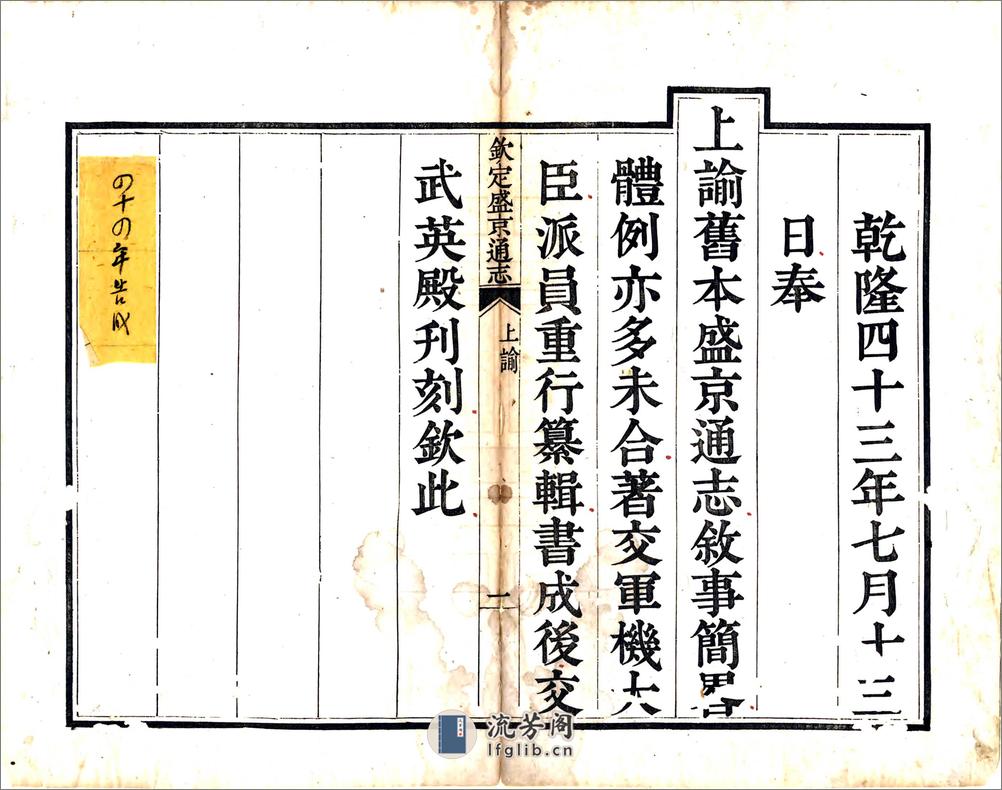 乾隆四十三年七月十三
日奉
上諭舊本盛京通志敘事簡畧
體例亦多未合著交軍機大
臣派員重行纂輯書成後交
欽定盛京通志
上諭
一
武英殿刊刻欽此
四十四年告成
流芳阁
lfglib.cn